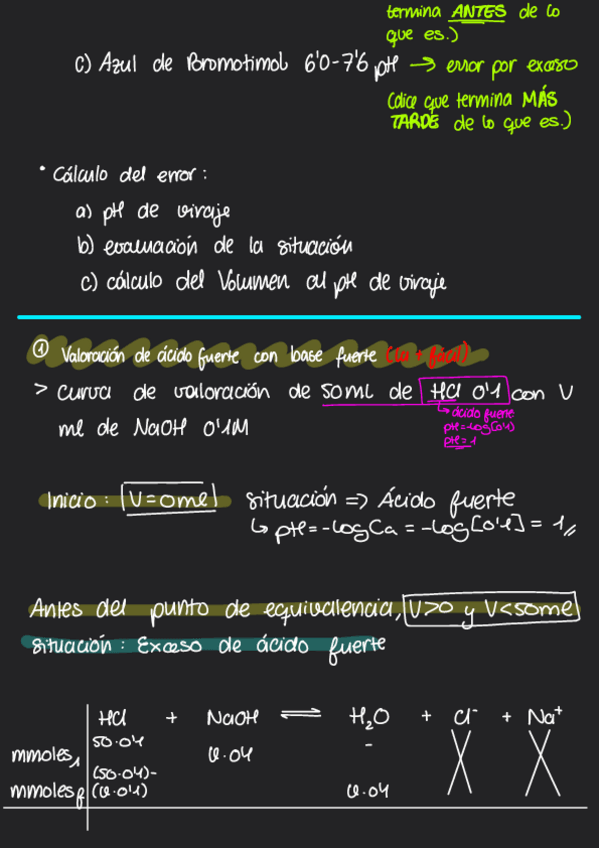 termina ANTES de lo
que es.)
c) Azul de Bromotimol 6'0-7'6 pH → error por exceso
(dice que termina MÁS
TARDE de lo que es.)
• Cálculo del error:
a) pH de viraje
b) evaluación de la situación
c) cálculo del Volumen al pH de viraje
① Valoración de ácido fuerte con base fuerte (la + fácil)
> Curva de valoración de 50ml de HCl 0'1 con V
↳ ácido fuerte
ml de NaOH 0'1M
pH=-log(0'1)
pH=1
Inicio: V=0ml situación => Ácido fuerte
↳ pH=-logCa = -log[0'1] = 1//
Antes del punto de equivalencia, V>0 y V<50ml
Situación: Exceso de ácido fuerte
HCl + NaOH ⇌ H₂O + Cl⁻ + Na⁺
mmoles₁ 50·0'1 V·0'1 -
mmolesf (50·0'1)-(V·0'1) V·0'1